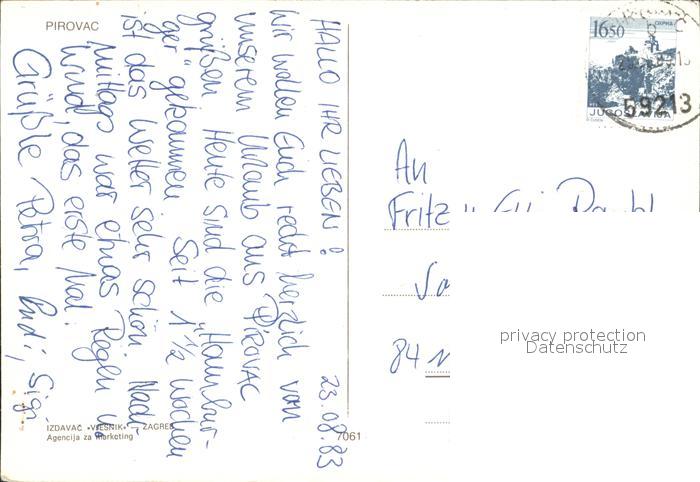 PIROVAC
23.08.83
HALLO IHR LIEBEN!
Wir wollen Euch recht herzlich vom
unserem Urlaub aus PIROVAC
grüßen. Heute sind die "Hambur-
ger" gekommen. Seit 1 1/2 Wochen
ist das Wetter sehr schön. Nach-
mittags war etwas Regen u.
Wind, das erste Mal.
Grüßle Petra, Rudi, Sigi
IZDAVAČ »VJESNIK« — ZAGREB
Agencija za marketing
7061
16.50
59213
JUGOSLAVIJA
An
Fritz u.
84
privacy protection
Datenschutz